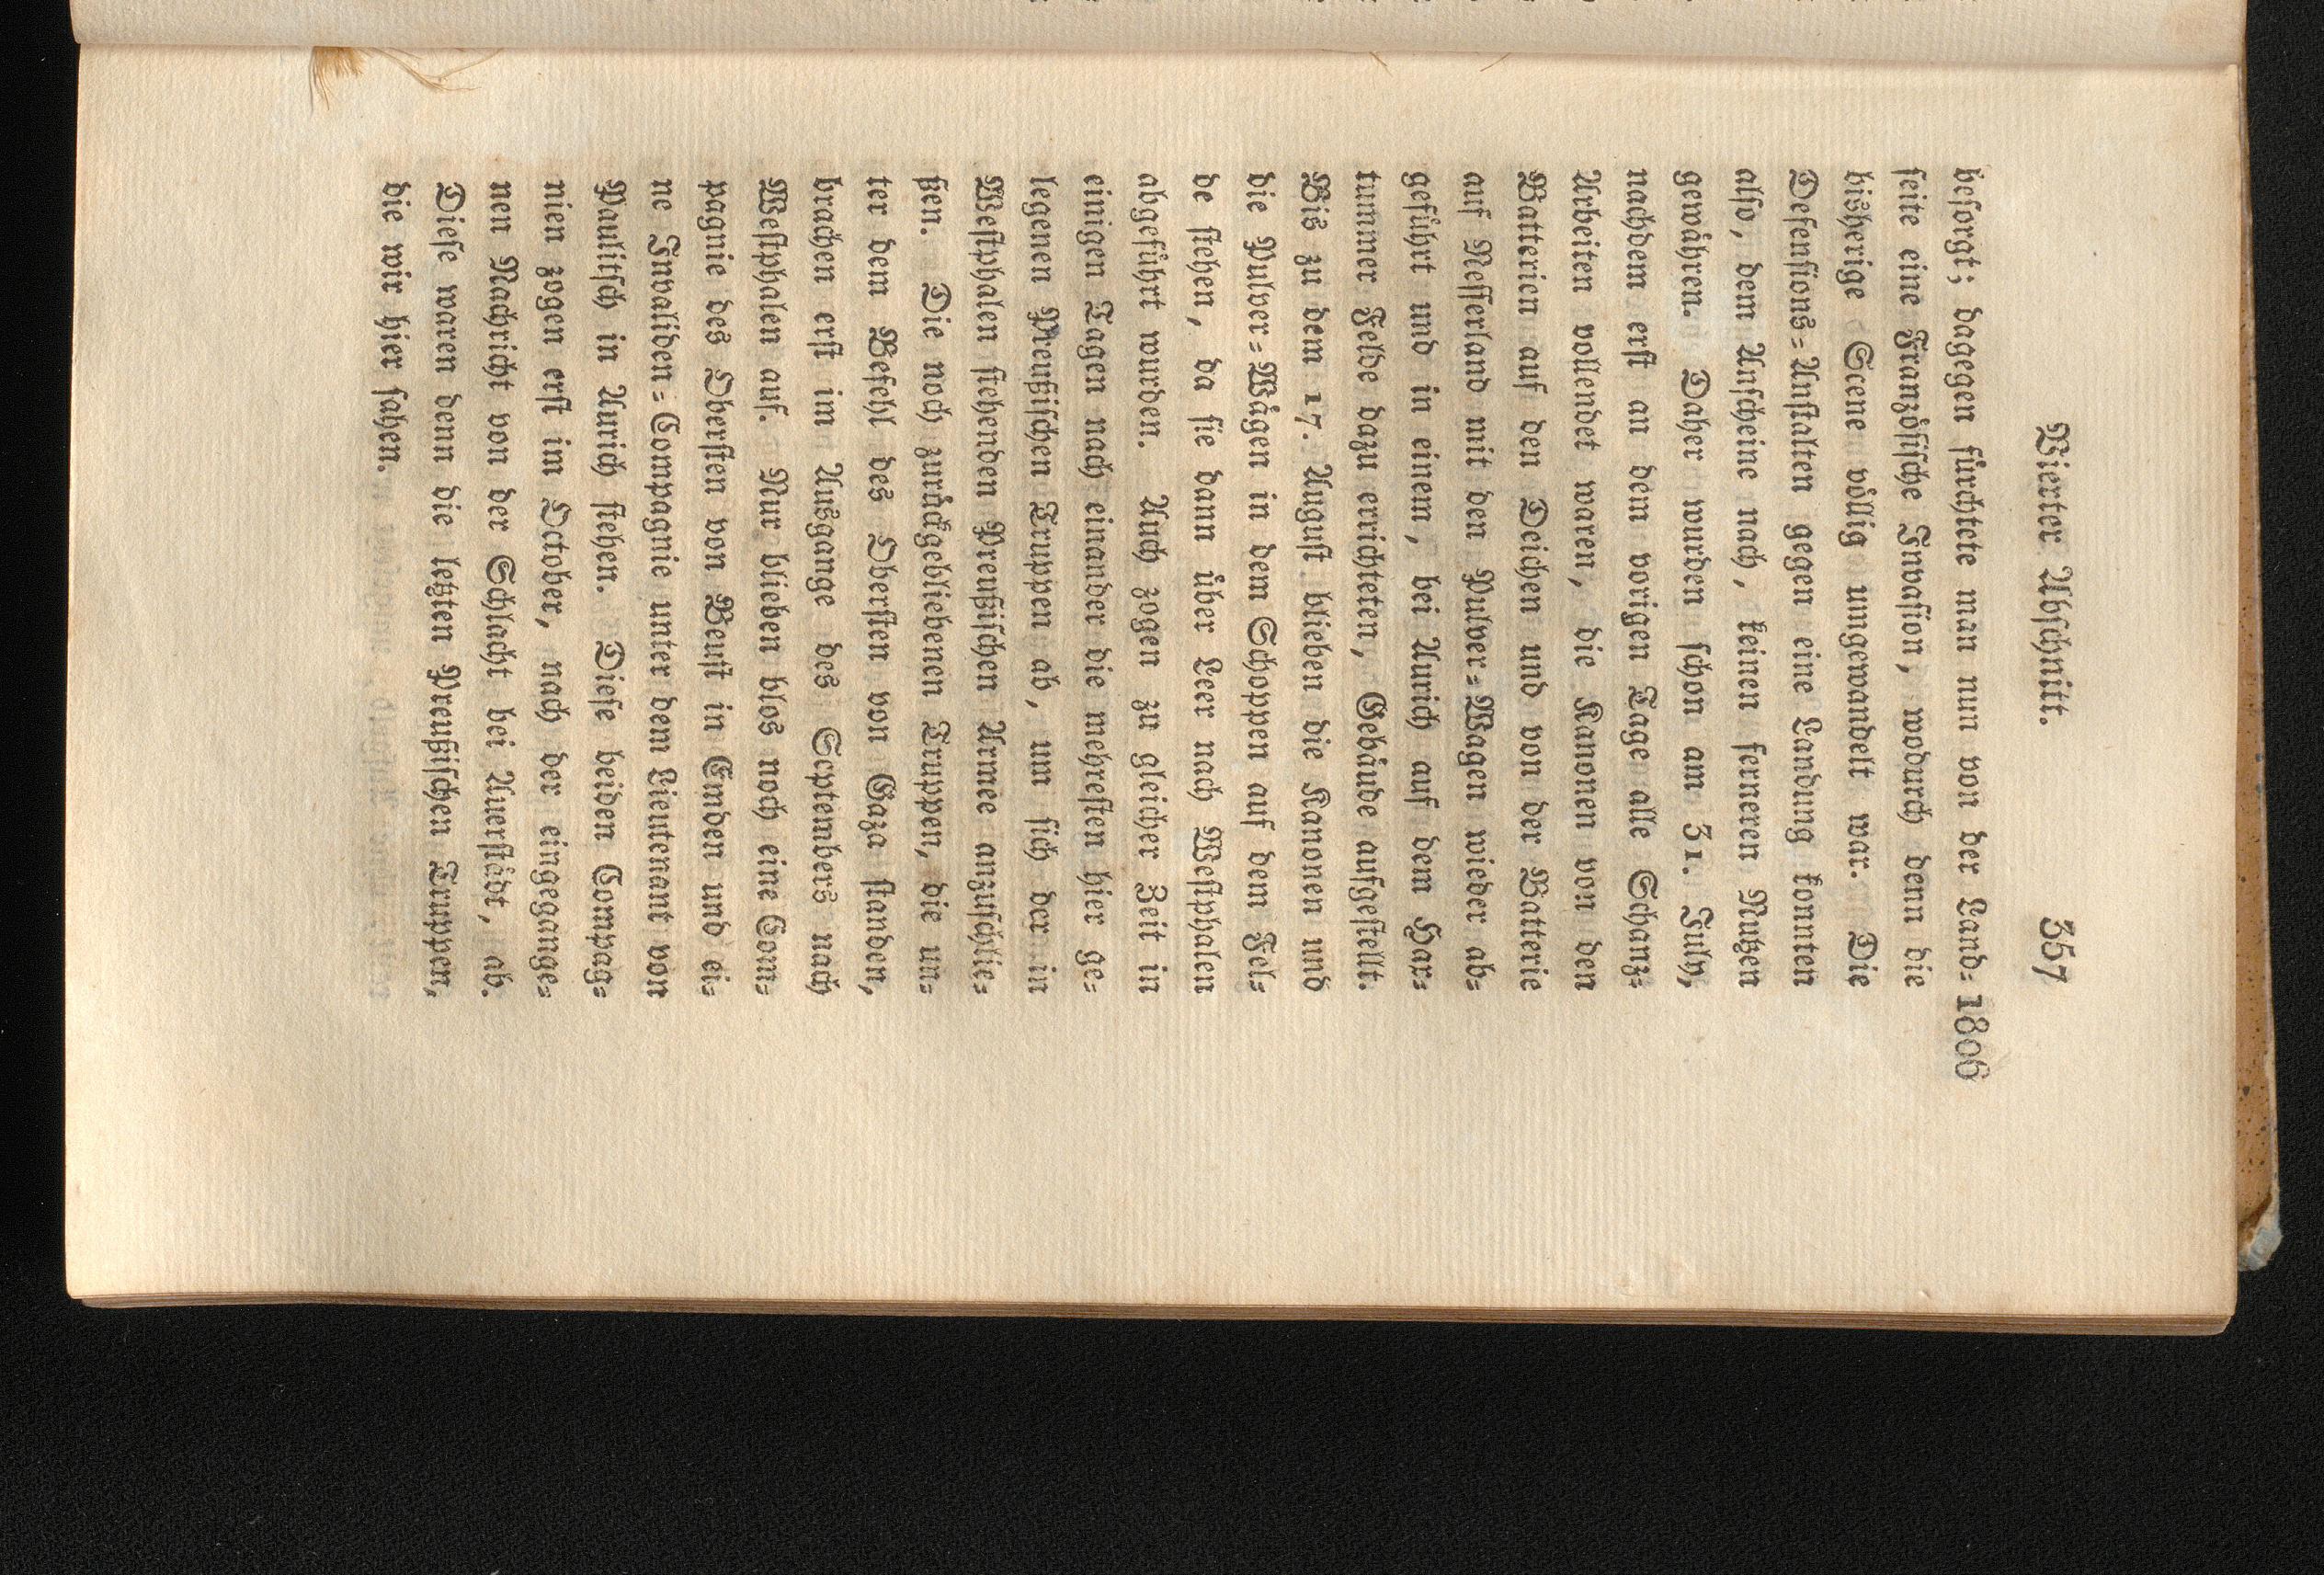 Vierter Abſchnitt. 357
beſorgt; dagegen fürchtete man nun von der Land= 1806
ſeite eine Franzöſiſche Invaſion, wodurch denn die
bisherige Scene völlig umgewandelt war. Die
Defenſions=Anſtalten gegen eine Landung konnten
alſo, dem Anſcheine nach, keinen ferneren Nutzen
gewähren. Daher wurden ſchon am 31. July,
nachdem erſt an dem vorigen Tage alle Schanz=
Arbeiten vollendet waren, die Kanonen von den
Batterien auf den Deichen und von der Batterie
auf Neſſerland mit den Pulver=Wagen wieder ab=
geführt und in einem, bei Aurich auf dem Har=
tummer Felde dazu errichteten, Gebäude aufgeſtellt.
Bis zu dem 17. Auguſt blieben die Kanonen und
die Pulver=Wägen in dem Schoppen auf dem Fel=
de ſtehen, da ſie dann über Leer nach Weſtphalen
abgeführt wurden. Auch zogen zu gleicher Zeit in
einigen Tagen nach einander die mehreſten hier ge=
legenen Preußiſchen Truppen ab, um ſich der in
Weſtphalen ſtehenden Preußiſchen Armee anzuſchlie=
ßen. Die noch zurückgebliebenen Truppen, die un=
ter dem Befehl des Oberſten von Gaza ſtanden,
brachen erſt im Ausgange des Septembers nach
Weſtphalen auf. Nur blieben blos noch eine Com=
pagnie des Oberſten von Beuſt in Emden und ei=
ne Invaliden=Compagnie unter dem Lieutenant von
Paulitſch in Aurich ſtehen. Dieſe beiden Compag=
nien zogen erſt im October, nach der eingegange=
nen Nachricht von der Schlacht bei Auerſtädt, ab.
Dieſe waren denn die letzten Preußiſchen Truppen,
die wir hier ſahen.